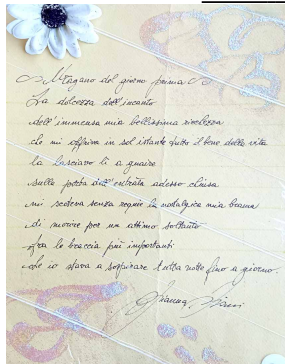 del giorno prima
La dolcezza dell'incanto
dell'immensa mia bellissima ricchezza
che mi offriva in sol istante tutto il bene della vita
la lasciavo lì a guaire
sulla porta dell'entrata adesso chiusa
mi rodeva senza requie la nostalgica mia brama
di morire per un attimo soltanto
fra le braccia più importanti
che io stava a sospirare tutta notte fino a giorno.
Gianna